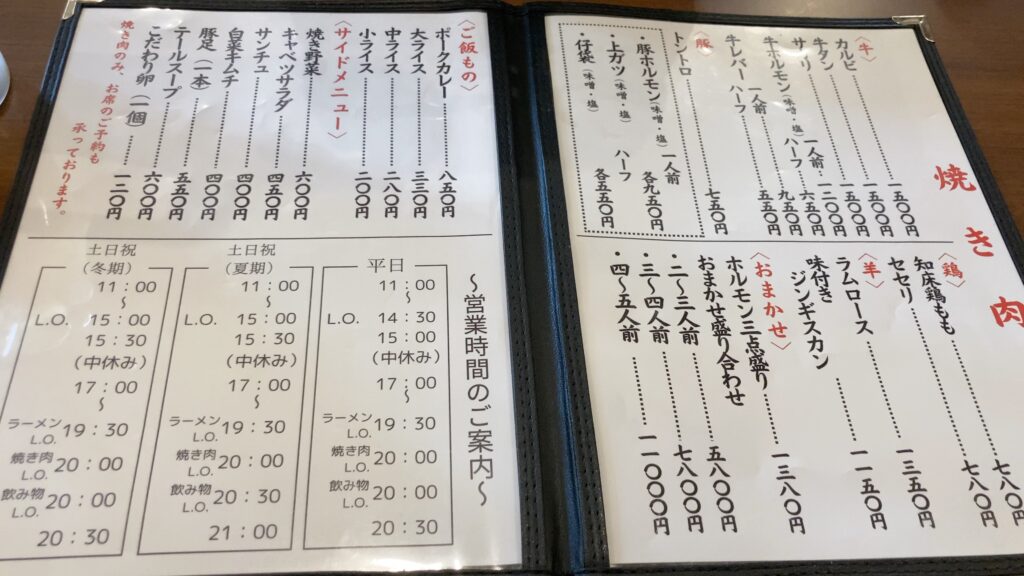 焼き肉
〈牛〉
カルビ 一五〇〇円
牛タン 一五〇〇円
サガリ 一五〇〇円
牛ホルモン(味噌・塩) 一人前 一二〇〇円
ハーフ 六五〇円
牛レバー 一人前 九五〇円
ハーフ 五五〇円
〈豚〉
トントロ 七五〇円
・豚ホルモン(味噌・塩) 一人前 各九五〇円
・上ガツ(味噌・塩) ハーフ 各五五〇円
・仔袋(味噌・塩)
〈鶏〉
知床鶏もも 七八〇円
セセリ 七八〇円
〈羊〉
ラムロース 一三五〇円
味付き
ジンギスカン 一一五〇円
〈おまかせ〉
ホルモン三点盛り 一三八〇円
おまかせ盛り合わせ
・二〜三人前 五八〇〇円
・三〜四人前 七八〇〇円
・四〜五人前 一一〇〇〇円
〈ご飯もの〉
ポークカレー 八五〇円
大ライス 三三〇円
中ライス 二八〇円
小ライス 二〇〇円
〈サイドメニュー〉
焼き野菜 六〇〇円
キャベツサラダ 四五〇円
サンチュ 四〇〇円
白菜キムチ 四〇〇円
豚足(一本) 五五〇円
テールスープ 六〇〇円
こだわり卵(一個) 一二〇円
焼き肉のみ、お席のご予約も
承っております。
〜営業時間のご案内〜
平日
11:00
〜
L.O. 14:30
15:00
(中休み)
17:00
〜
ラーメン L.O. 19:30
焼き肉 L.O. 20:00
飲み物 L.O. 20:00
20:30
土日祝
(夏期)
11:00
〜
L.O. 15:00
15:30
(中休み)
17:00
〜
ラーメン L.O. 19:30
焼き肉 L.O. 20:00
飲み物 L.O. 20:30
21:00
土日祝
(冬期)
11:00
〜
L.O. 15:00
15:30
(中休み)
17:00
〜
ラーメン L.O. 19:30
焼き肉 L.O. 20:00
飲み物 L.O. 20:00
20:30